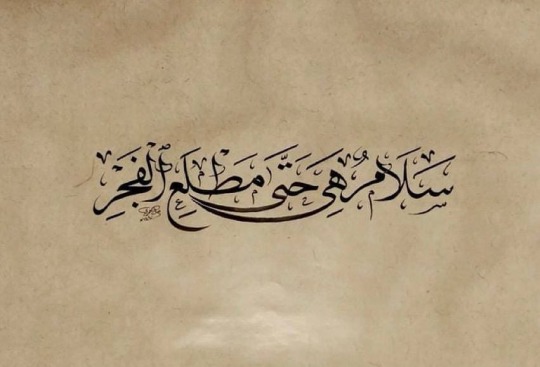 سَلَامٌ هِيَ حَتَّى مَطْلَعِ ٱلْفَجْرِ